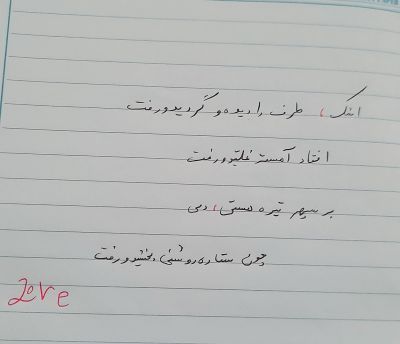 اشک، طرف دیده و گردید و رفت
افتاد آهسته غلتید و رفت
بر سپهر تیره هستی، دمی
چون ستاره روشنی بخشید و رفت
Love